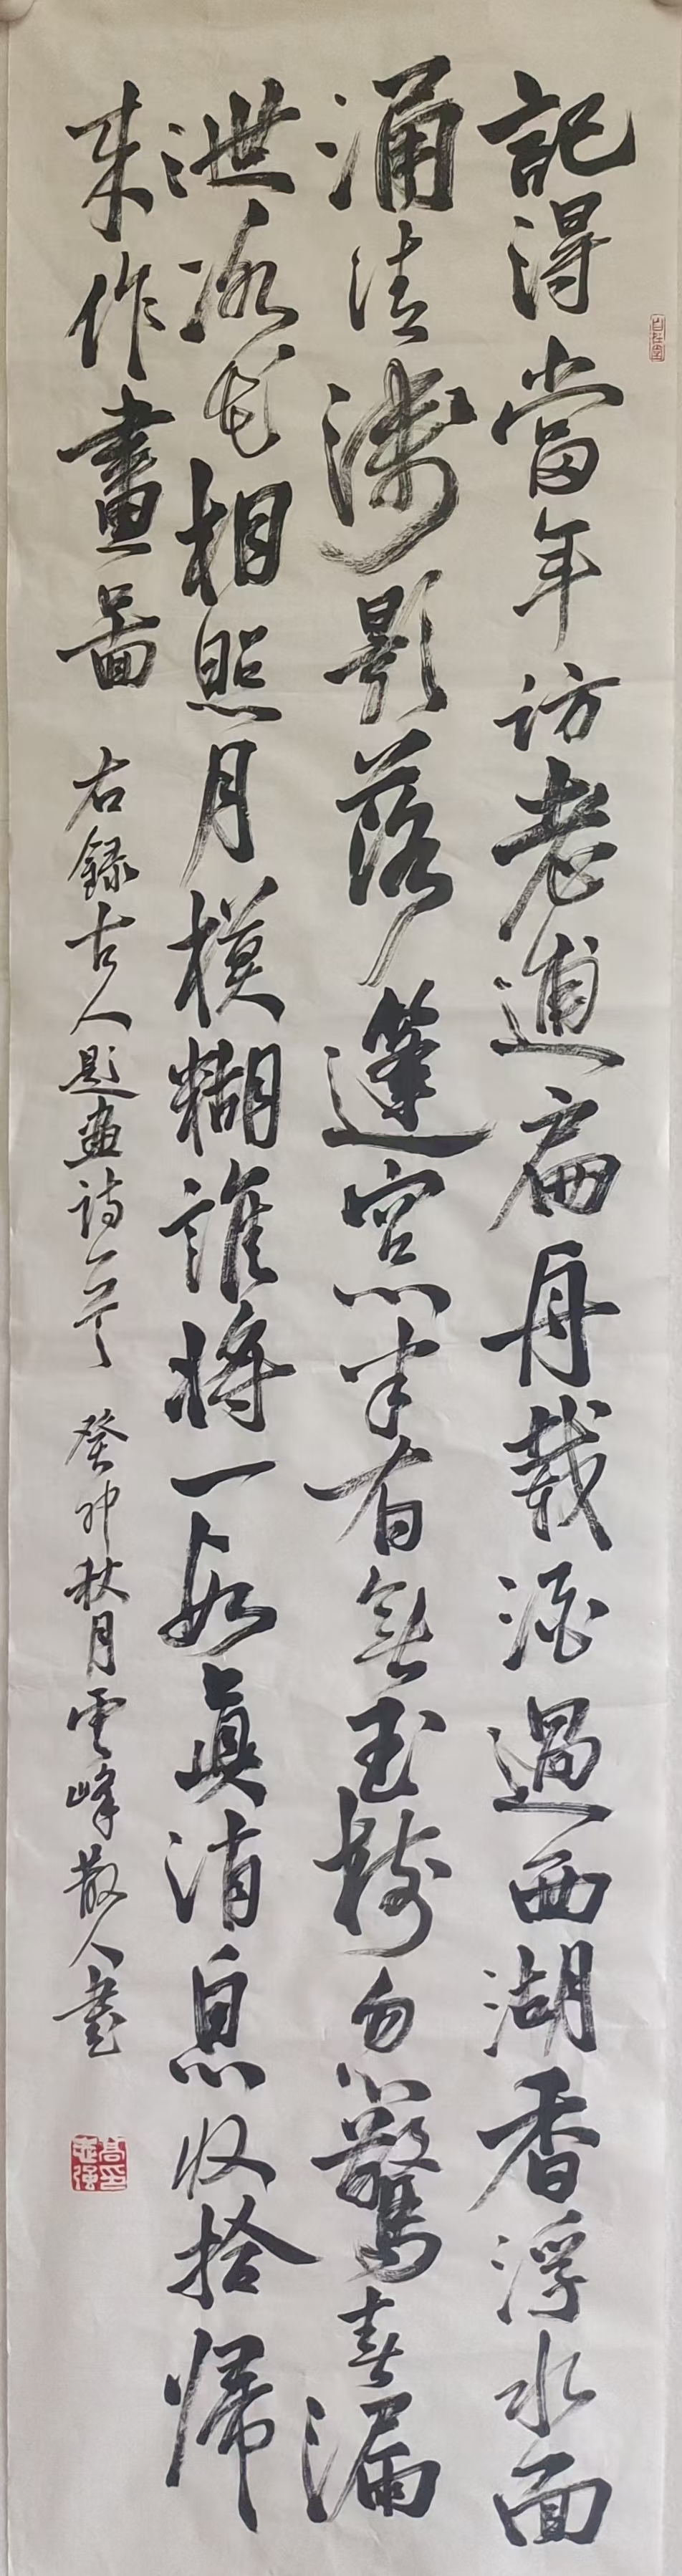 記得當年访老逋扁舟載酒過西湖香浮水面
涌清淺影落篷窓半有無玉樹忽驚春漏
泄冰花相照月模糊誰將一段真消息收拾歸
来作畫啚 右録古人題畫诗一首 癸卯秋月雲峰散人書